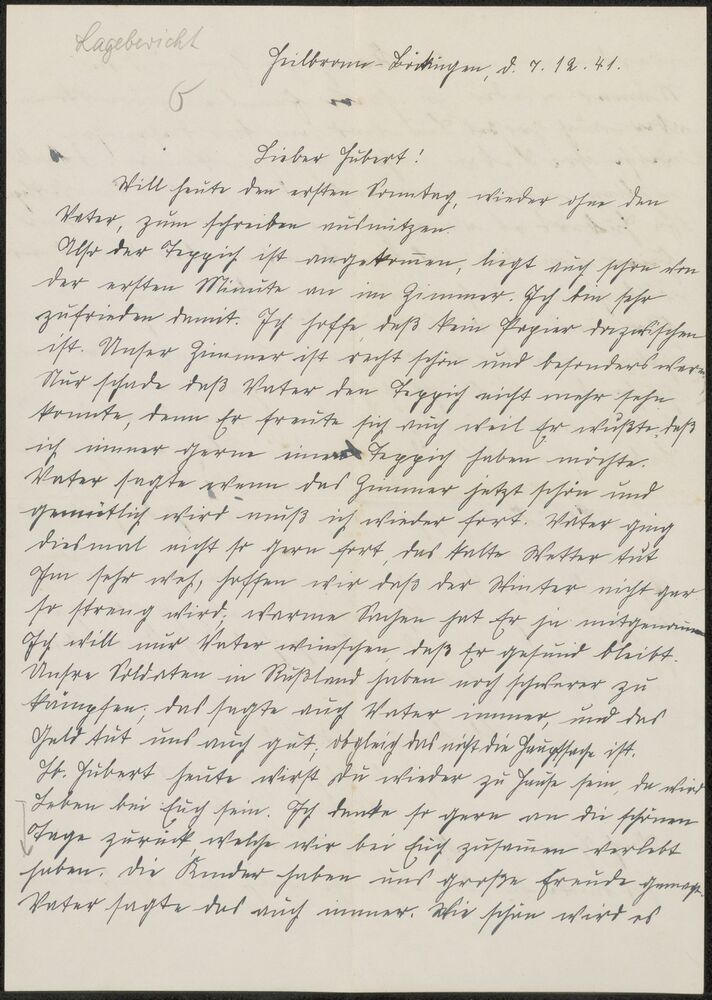 Lagebericht
Heilbronn-Böckingen, d. 7.12.41.
5
Lieber Hubert!
Will heute den ersten Sonntag, wieder ohne den
Vater, zum schreiben ausnützen.
Also der Teppich ist angekommen, liegt auch schon von
der ersten Minute an im Zimmer. Ich bin sehr
zufrieden damit. Ich hoffe, daß kein Papier dazwischen
ist. Unser Zimmer ist recht schön und besonders warm
Nur schade daß Vater den Teppich nicht mehr sehn
konnte, denn Er freute sich auch weil Er wußte, daß
ich immer gerne einen Teppich haben möchte.
Vater sagte wenn das Zimmer jetzt schön und
gemütlich wird muß ich wieder fort. Vater ging
diesmal nicht so gern fort, das kalte Wetter tut
Ihm sehr weh, hoffen wir daß der Winter nicht gar
so streng wird, warme Sachen hat Er ja mitgenommen
Ich will nur Vater wünschen, daß Er gesund bleibt.
Unsre Soldaten in Rußland haben noch schwerer zu
kämpfen; das sagte auch Vater immer, und das
Geld tut uns auch gut, obgleich das nicht die Hauptsache ist.
Lb. Hubert heute wirst Du wieder zu Hause sein, da wird
Leben bei Euch sein. Ich denke so gern an die schönen
Tage zurück welche wir bei Euch zusammen verlebt
haben. Die Kinder haben uns große Freude gemacht.
Vater sagte das auch immer. Wie schön wird es